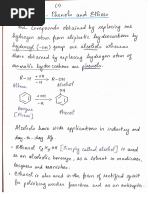 Phenols and Ethers
The compounds obtained by replacing one
hydrogen atom from aliphatic hydrocarbons by
hydroxyl (-OH) group are alcohols whereas
those obtained by replacing hydrogen atom of
aromatic hydrocarbons are phenols.
R-H
-H
+OH
R-OH
Alkane
Alcohol
-H
+OH
OH
Benzene
Phenol
Alcohols have wide applications in industry and
day-to-day life.
Ethanol, C₂H₅OH [simply called alcohol] is used
as an alcoholic beverage, as a solvent in medicines,
Ethanol is also used in the form of
for polishing wooden furniture and as an antiseptic.